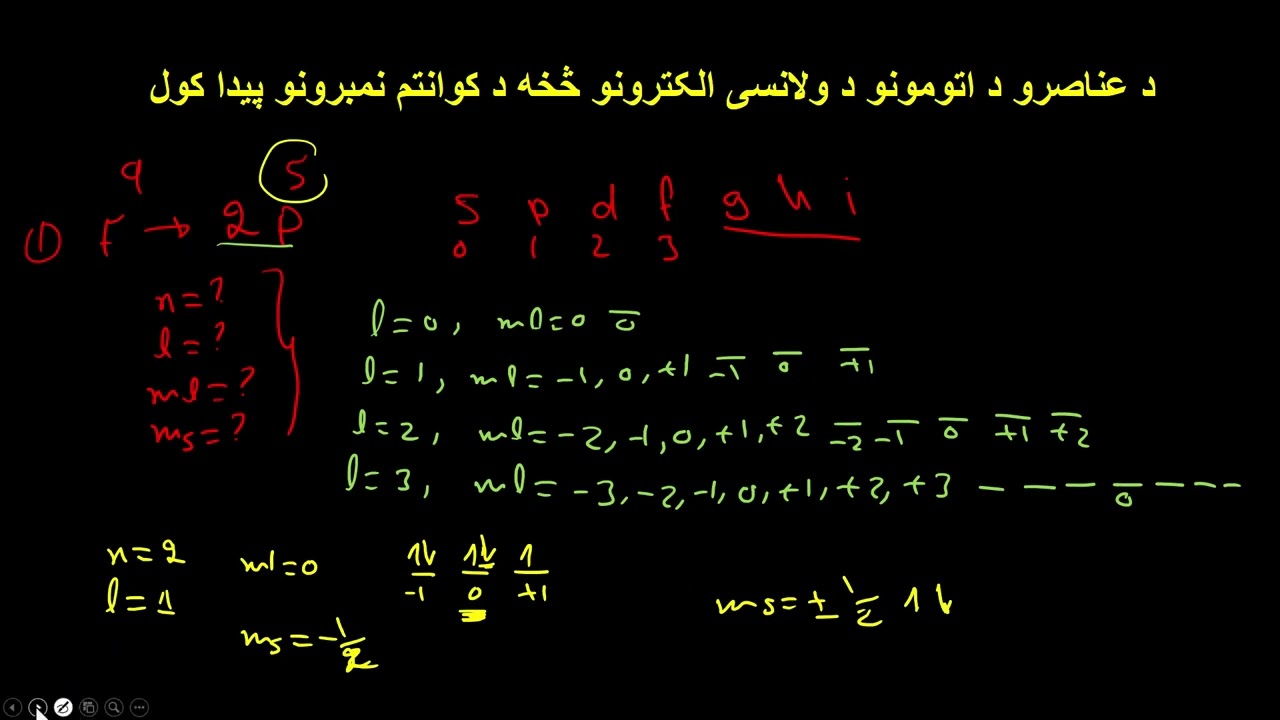 د عناصرو د اتومونو د ولانسی الکترونو څخه د کوانتم نمبرونو پیدا کول
9 5
① F → 2 P
s p d f g h i
0 1 2 3
n = ?
l = ?
ml = ?
ms = ?
l = 0, ml = 0 0
l = 1, ml = -1, 0, +1 -1 0 +1
l = 2, ml = -2, -1, 0, +1, +2 -2 -1 0 +1 +2
l = 3, ml = -3, -2, -1, 0, +1, +2, +3 0
n = 2 ml = 0 1↓ 1↓ 1
l = 1 -1 0 +1 ms = ± 1/2 1↓
ms = -1/2